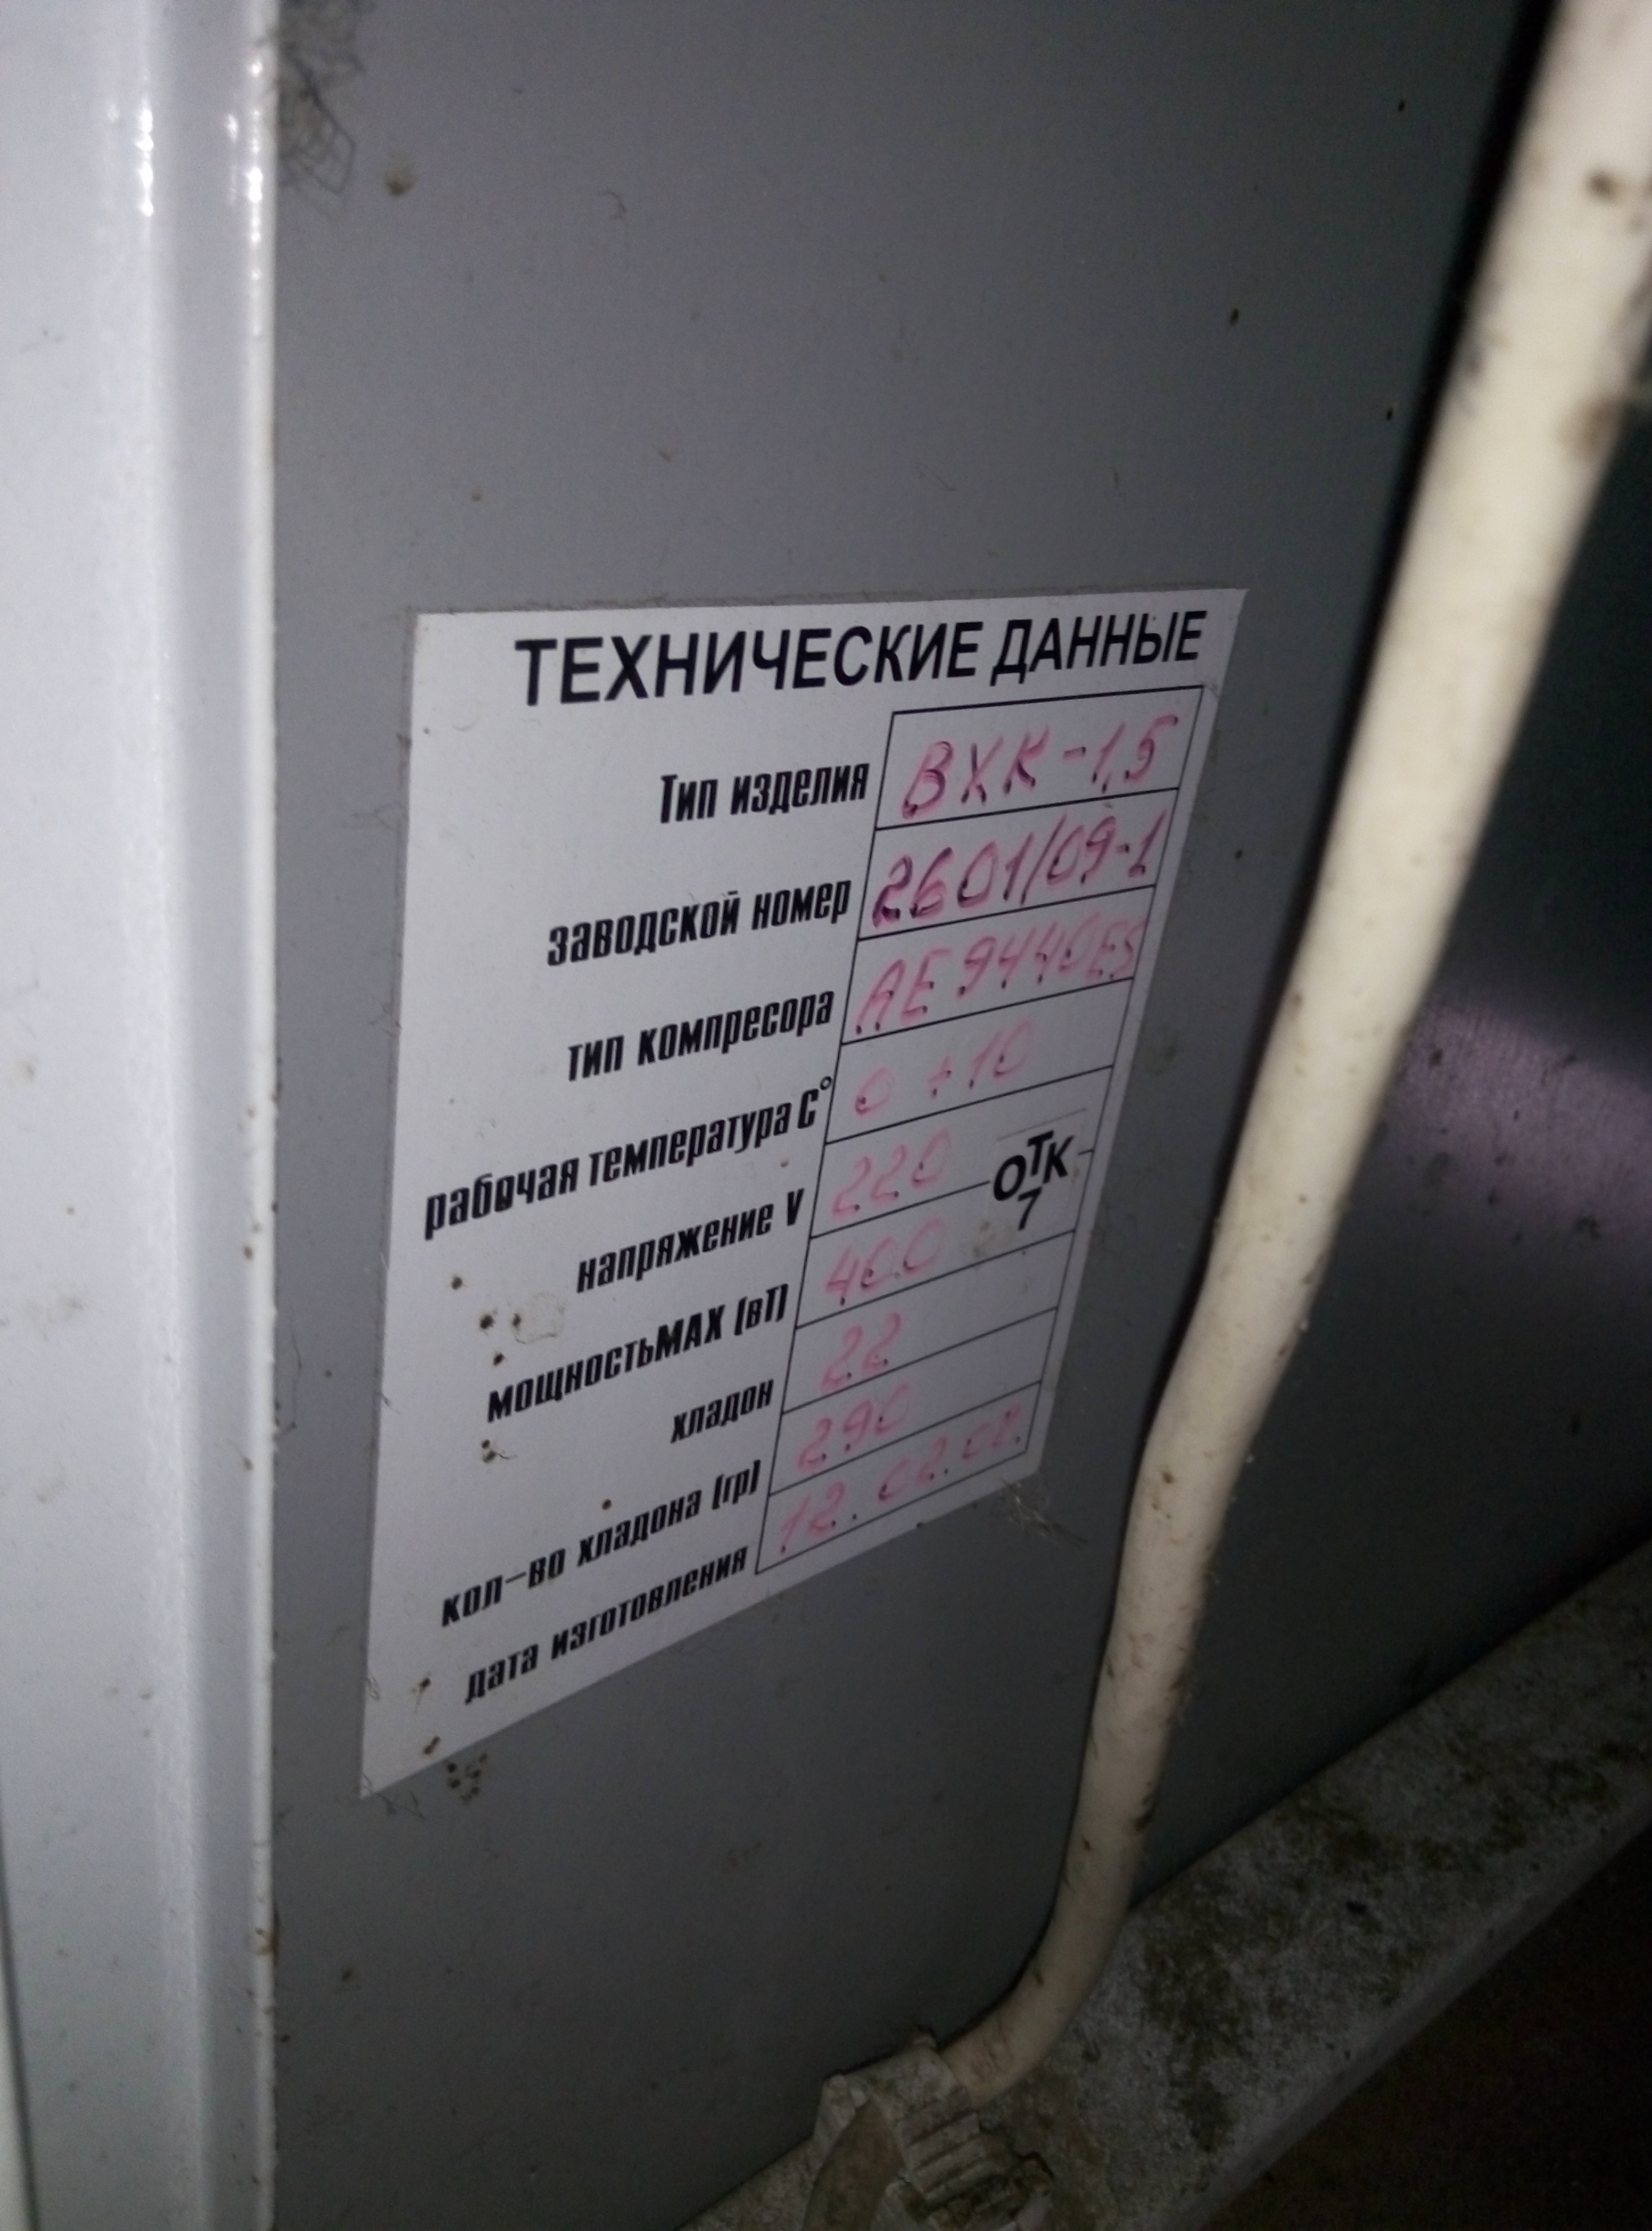 ТЕХНИЧЕСКИЕ ДАННЫЕ
Тип изделия ВХК-1,5
заводской номер 2601/09-1
тип компресора AE9440ES
рабочая температура С° 0 +10
напряжение V 220
ОТК
7
мощностьMAX (вТ) 400
хладон 22
кол-во хладона (гр) 290
дата изготовления 12.02.02.